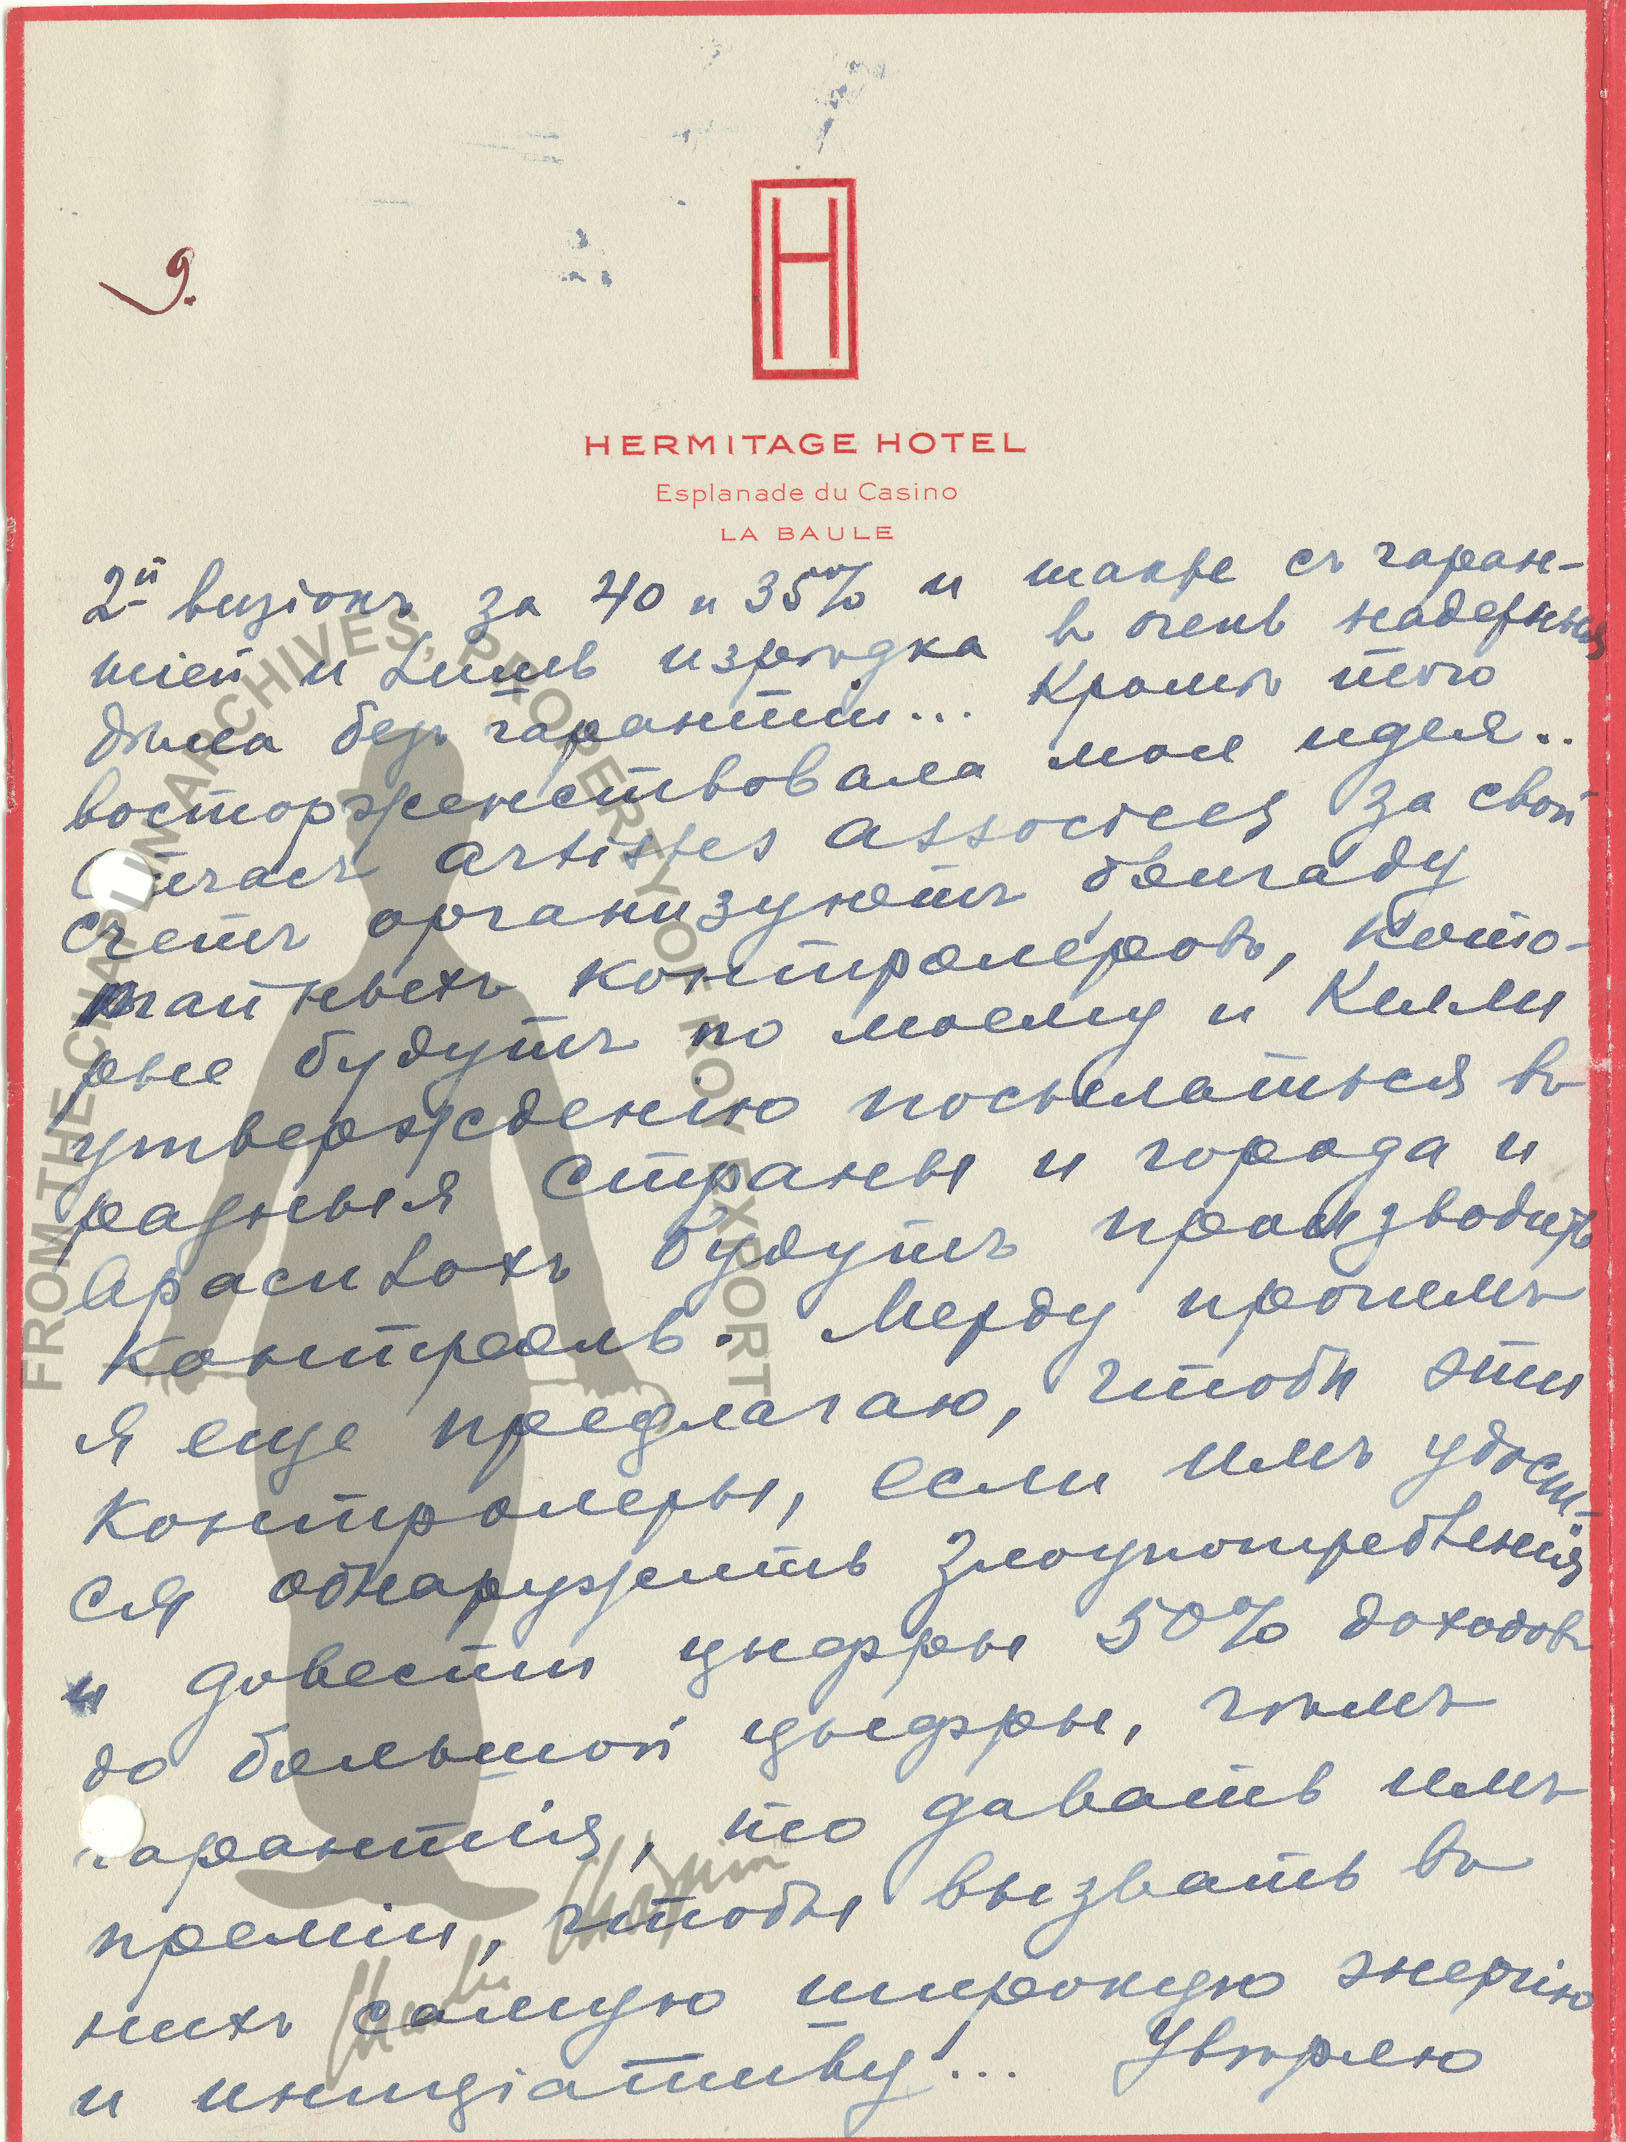 9.
H
HERMITAGE HOTEL
Esplanade du Casino
LA BAULE
2й визіонъ за 40 и 35% и также съ гаран-
тіей и лишь изрѣдка въ очень надежныя
дѣла безъ гарантіи... Кромѣ того
восторжествовала моя идея..
artistes associees за свой
счетъ организуютъ бригаду
тайныхъ контролеровъ, кото-
рые будутъ по моему и Келли
утвержденію посылаться въ
разныя страны и города и
въ расплохъ будутъ производить
контроль. Между прочемъ
я еще предлагаю, чтобы эти
контролеры, если имъ удаст-
ся обнаружить злоупотребленія
и довести цыфры 50% доходовъ
до большой цыфры, чѣмъ
гарантія, то давать имъ
преміи, чтобы вызвать въ
нихъ самую широкую энергію
и иниціативу!... Увѣряю
FROM THE CHAPLIN ARCHIVES, PROPERTY OF ROY EXPORT
Charlie Chaplin